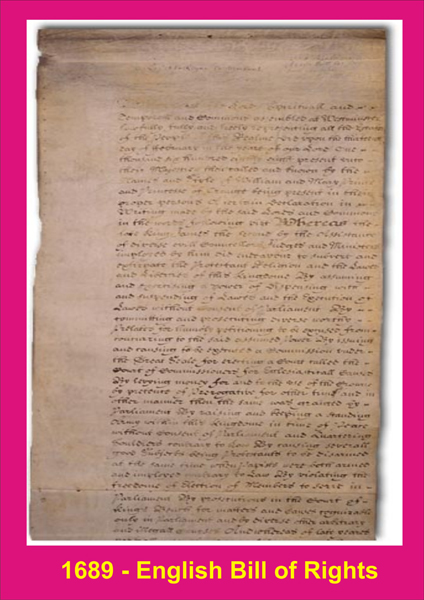 Lords Spirituall and
Temporall and Commons assembled at Westminster
lawfully fully and freely representing all the Estates
of the People of this Realme did upon the thirteenth
day of February in the yeare of our Lord One
thousand six hundred eighty eight present unto
their Majesties then called and known by the
Names and Stile of William and Mary Prince
and Princesse of Orange being present in their
proper persons a certain Declaration in
Writing made by the said Lords and Commons
in the words following vizt Whereas the
late King James the Second by the Assistance
of diverse evill Councellors Judges and Ministers
imployed by him did endeavour to subvert and
extirpate the Protestant Religion and the Lawes
and Liberties of this Kingdome By assuming
and exercising a power of Dispensing with
and suspending of Lawes and the Execution of
Lawes without consent of Parliament By
committing and prosecuting diverse worthy
Prelates for humbly petitioning to be excused from
concurring to the said assumed Power By issuing
and causing to be executed a Commission under
the Great Seale for erecting a Court called the
Court of Commissioners for Ecclesiasticall Causes
By levying money for and to the use of the Crowne
by pretence of Prerogative for other time and in
other manner then the same was granted by
Parliament By raising and keeping a standing
Army within this Kingdome in time of Peace
without Consent of Parliament and Quartering
Souldiers contrary to Law By causing severall
good Subjects being Protestants to be disarmed
at the same time when Papists were both armed
and imployed contrary to Law By violating the
freedome of Election of Members to serve in
Parliament By prosecutions in the Court of
Kings Bench for matters and causes cognizable
only in Parliament and by diverse other arbitrary
and illegall courses And whereas of late yeares
1689 - English Bill of Rights